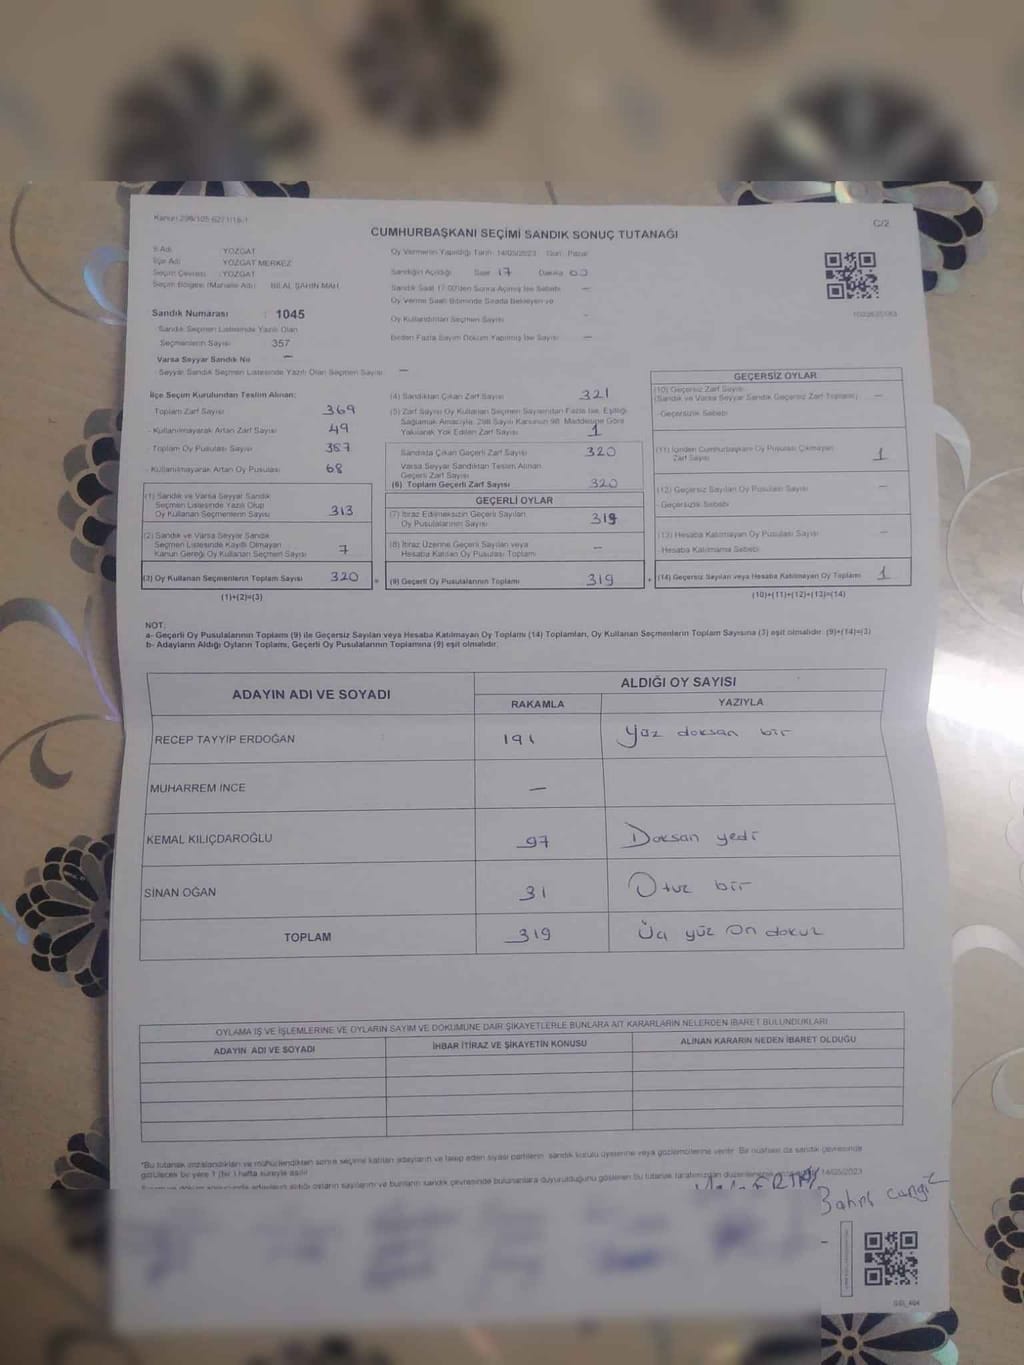 Kanun 298/105-6271/16-1
C/2
CUMHURBAŞKANI SEÇİMİ SANDIK SONUÇ TUTANAĞI
İl Adı : YOZGAT
İlçe Adı : YOZGAT MERKEZ
Seçim Çevresi : YOZGAT
Seçim Bölgesi (Mahalle Adı) : BİLAL ŞAHİN MAH.
Oy Vermenin Yapıldığı Tarih 14/05/2023 Gün: Pazar
Sandığın Açıldığı Saat 17 Dakika 00
Sandık Saat 17:00'den Sonra Açılmış İse Sebebi —
Oy Verme Saati Bitiminde Sırada Bekleyen ve
Oy Kullandırılan Seçmen Sayısı -
Birden Fazla Sayım Döküm Yapılmış İse Sayısı —
Sandık Numarası : 1045
Sandık Seçmen Listesinde Yazılı Olan
Seçmenlerin Sayısı 357
Varsa Seyyar Sandık No —
Seyyar Sandık Seçmen Listesinde Yazılı Olan Seçmen Sayısı —
İlçe Seçim Kurulundan Teslim Alınan;
Toplam Zarf Sayısı 369
- Kullanılmayarak Artan Zarf Sayısı 49
Toplam Oy Pusulası Sayısı 387
- Kullanılmayarak Artan Oy Pusulası 68
(1) Sandık ve Varsa Seyyar Sandık
Seçmen Listesinde Yazılı Olup
Oy Kullanan Seçmenlerin Sayısı 313
(2) Sandık ve Varsa Seyyar Sandık
Seçmen Listesinde Kayıtlı Olmayan
Kanun Gereği Oy Kullanan Seçmen Sayısı 7
(3) Oy Kullanan Seçmenlerin Toplam Sayısı 320
(1)+(2)=(3)
(4) Sandıktan Çıkan Zarf Sayısı 321
(5) Zarf Sayısı Oy Kullanan Seçmen Sayısından Fazla İse, Eşitliği
Sağlamak Amacıyla, 298 Sayılı Kanunun 98. Maddesine Göre
Yakılarak Yok Edilen Zarf Sayısı 1
Sandıkta Çıkan Geçerli Zarf Sayısı 320
Varsa Seyyar Sandıktan Teslim Alınan
Geçerli Zarf Sayısı
(6) Toplam Geçerli Zarf Sayısı 320
GEÇERLİ OYLAR
(7) İtiraz Edilmeksizin Geçerli Sayılan
Oy Pusulalarının Sayısı 319
(8) İtiraz Üzerine Geçerli Sayılan veya
Hesaba Katılan Oy Pusulası Toplamı —
= (9) Geçerli Oy Pusulalarının Toplamı 319
GEÇERSİZ OYLAR
(10) Geçersiz Zarf Sayısı
(Sandık ve Varsa Seyyar Sandık Geçersiz Zarf Toplamı) —
- Geçersizlik Sebebi
(11) İçinden Cumhurbaşkanı Oy Pusulası Çıkmayan
Zarf Sayısı 1
(12) Geçersiz Sayılan Oy Pusulası Sayısı —
- Geçersizlik Sebebi
(13) Hesaba Katılmayan Oy Pusulası Sayısı —
- Hesaba Katılmama Sebebi
+ (14) Geçersiz Sayılan veya Hesaba Katılmayan Oy Toplamı 1
(10)+(11)+(12)+(13)=(14)
NOT:
a- Geçerli Oy Pusulalarının Toplamı (9) ile Geçersiz Sayılan veya Hesaba Katılmayan Oy Toplamı (14) Toplamları, Oy Kullanan Seçmenlerin Toplam Sayısına (3) eşit olmalıdır. (9)+(14)=(3)
b- Adayların Aldığı Oyların Toplamı, Geçerli Oy Pusulalarının Toplamına (9) eşit olmalıdır.
ADAYIN ADI VE SOYADI
ALDIĞI OY SAYISI
RAKAMLA
YAZIYLA
RECEP TAYYİP ERDOĞAN 191 Yüz doksan bir
MUHARREM İNCE —
KEMAL KILIÇDAROĞLU 97 Doksan yedi
SİNAN OĞAN 31 Otuz bir
TOPLAM 319 Üç yüz On dokuz
OYLAMA İŞ VE İŞLEMLERİNE VE OYLARIN SAYIM VE DÖKÜMÜNE DAİR ŞİKAYETLERLE BUNLARA AİT KARARLARIN NELERDEN İBARET BULUNDUKLARI
ADAYIN ADI VE SOYADI
İHBAR İTİRAZ VE ŞİKAYETİN KONUSU
ALINAN KARARIN NEDEN İBARET OLDUĞU
*Bu tutanak imzalandıktan ve mühürlendikten sonra seçime katılan adayların ve talep eden siyasi partilerin sandık kurulu üyelerine veya gözlemcilerine verilir. Bir nüshası da sandık çevresinde
görülecek bir yere 1 (bir ) hafta süreyle asılır.
14/05/2023